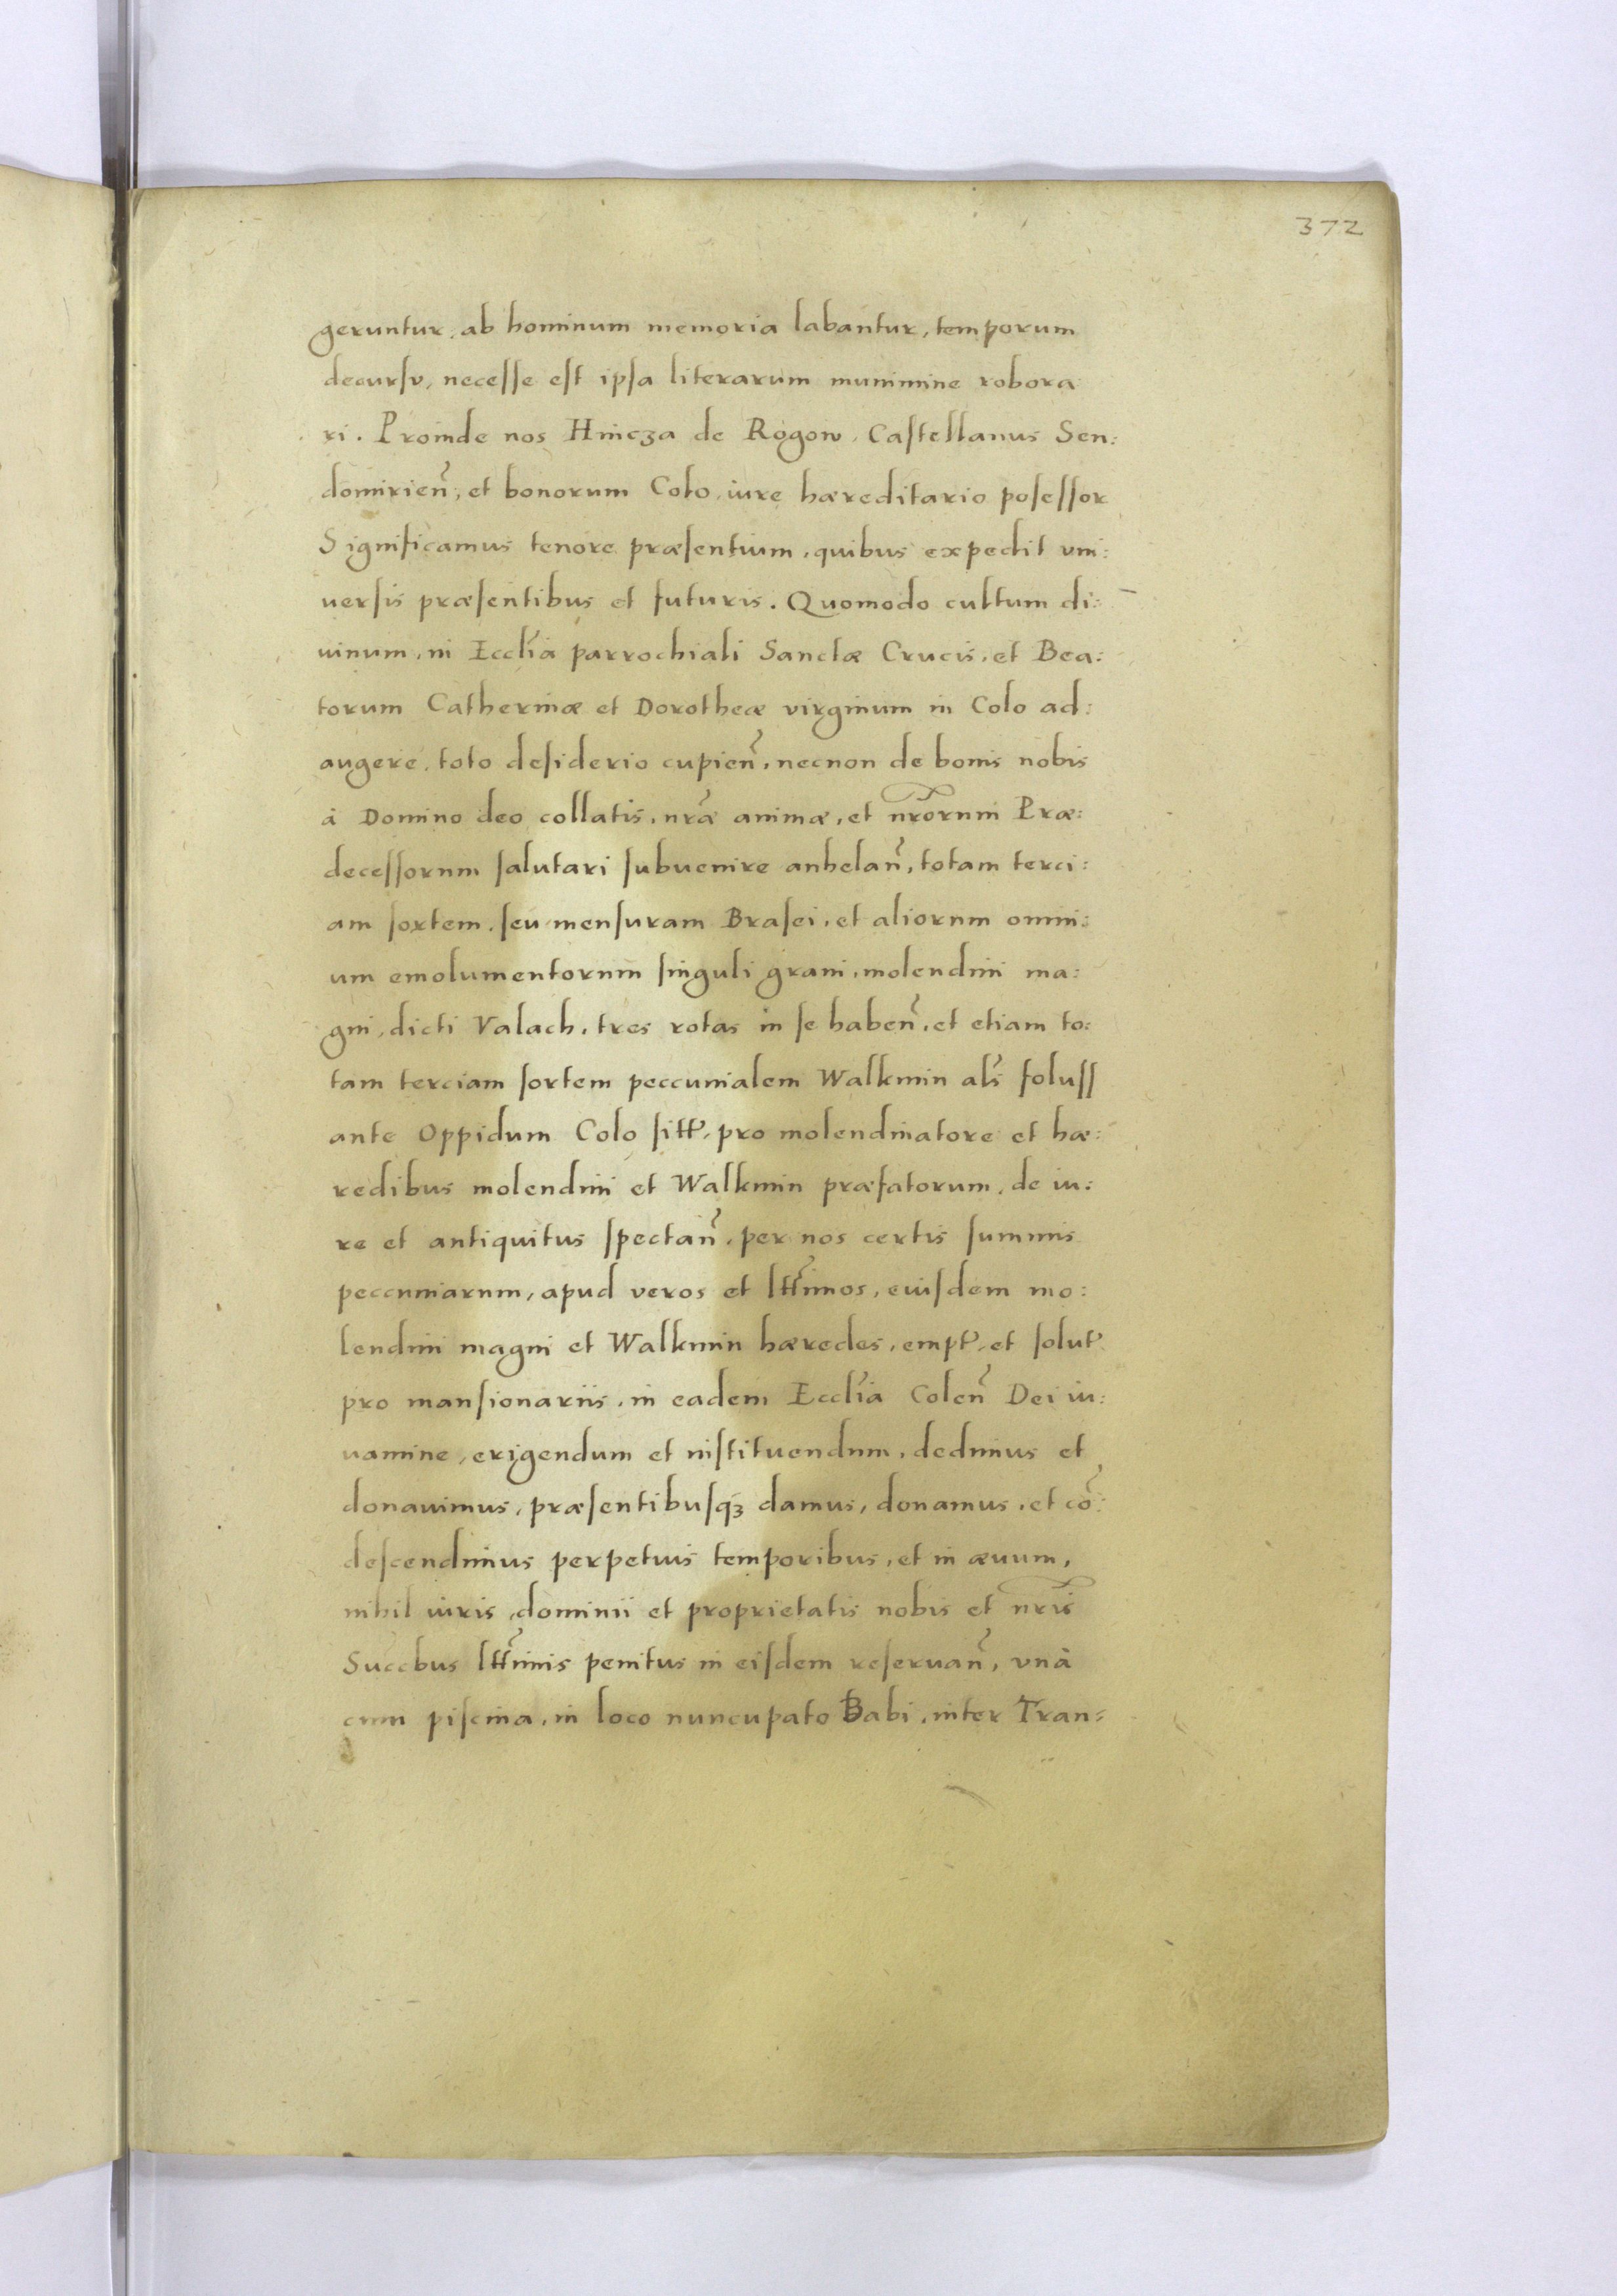 372
geruntur, ab hominum memoria labantur, temporum
decursv, necesse est ipsa literarum munimine robora
ri. Proinde nos Hincza de Rogow, Castellanus Sen:
domirieñ, et bonorum Colo, iure hæreditario posessor
Significamus tenore præsentium, quibus expedit vni:
uersis præsentibus et futuris. Quomodo cultum di:
uinum, in Eccĺia parrochiali Sanctæ Crucis, et Bea:
torum Catherinæ et Dorotheæ virginum in Colo ad:
augere, toto desiderio cupieñ, necnon de bonis nobis
à Domino deo collatis, nr̃æ animæ, et nr̃orum Præ:
decessorum salutari subuenire anhelañ, totam terci:
am sortem, seu mensuram Brasei, et aliorum omni:
um emolumentorum singuli grani, molendini ma:
gni, dicti Valach, tres rotas in se habeñ, et etiam to:
tam terciam sortem peccunialem Walkmin aĺs foluss
ante Oppidum Colo sitt̃, pro molendinatore et hæ:
redibus molendini et Walkmin præfatorum, de iu:
re et antiquitus spectañ, per nos certis summis
peccuniarum, apud veros et ltt̃imos, eiusdem mo:
lendini magni et Walkmin hæredes, empt̃, et solut̃
pro mansionariis, in eadem Eccĺia Coleñ Dei iu:
uamine, erigendum et instituendum, dedimus et
donauimus, præsentibusqꝫ damus, donamus, et cõ:
descendimus perpetuis temporibus, et in æuum,
nihil iuris, dominii et proprietatis nobis et nr̃is
Succbus ltt̃imis penitus in eisdem reseruañ, vnà
cum piscina, in loco nuncupato Babi, inter Tran=